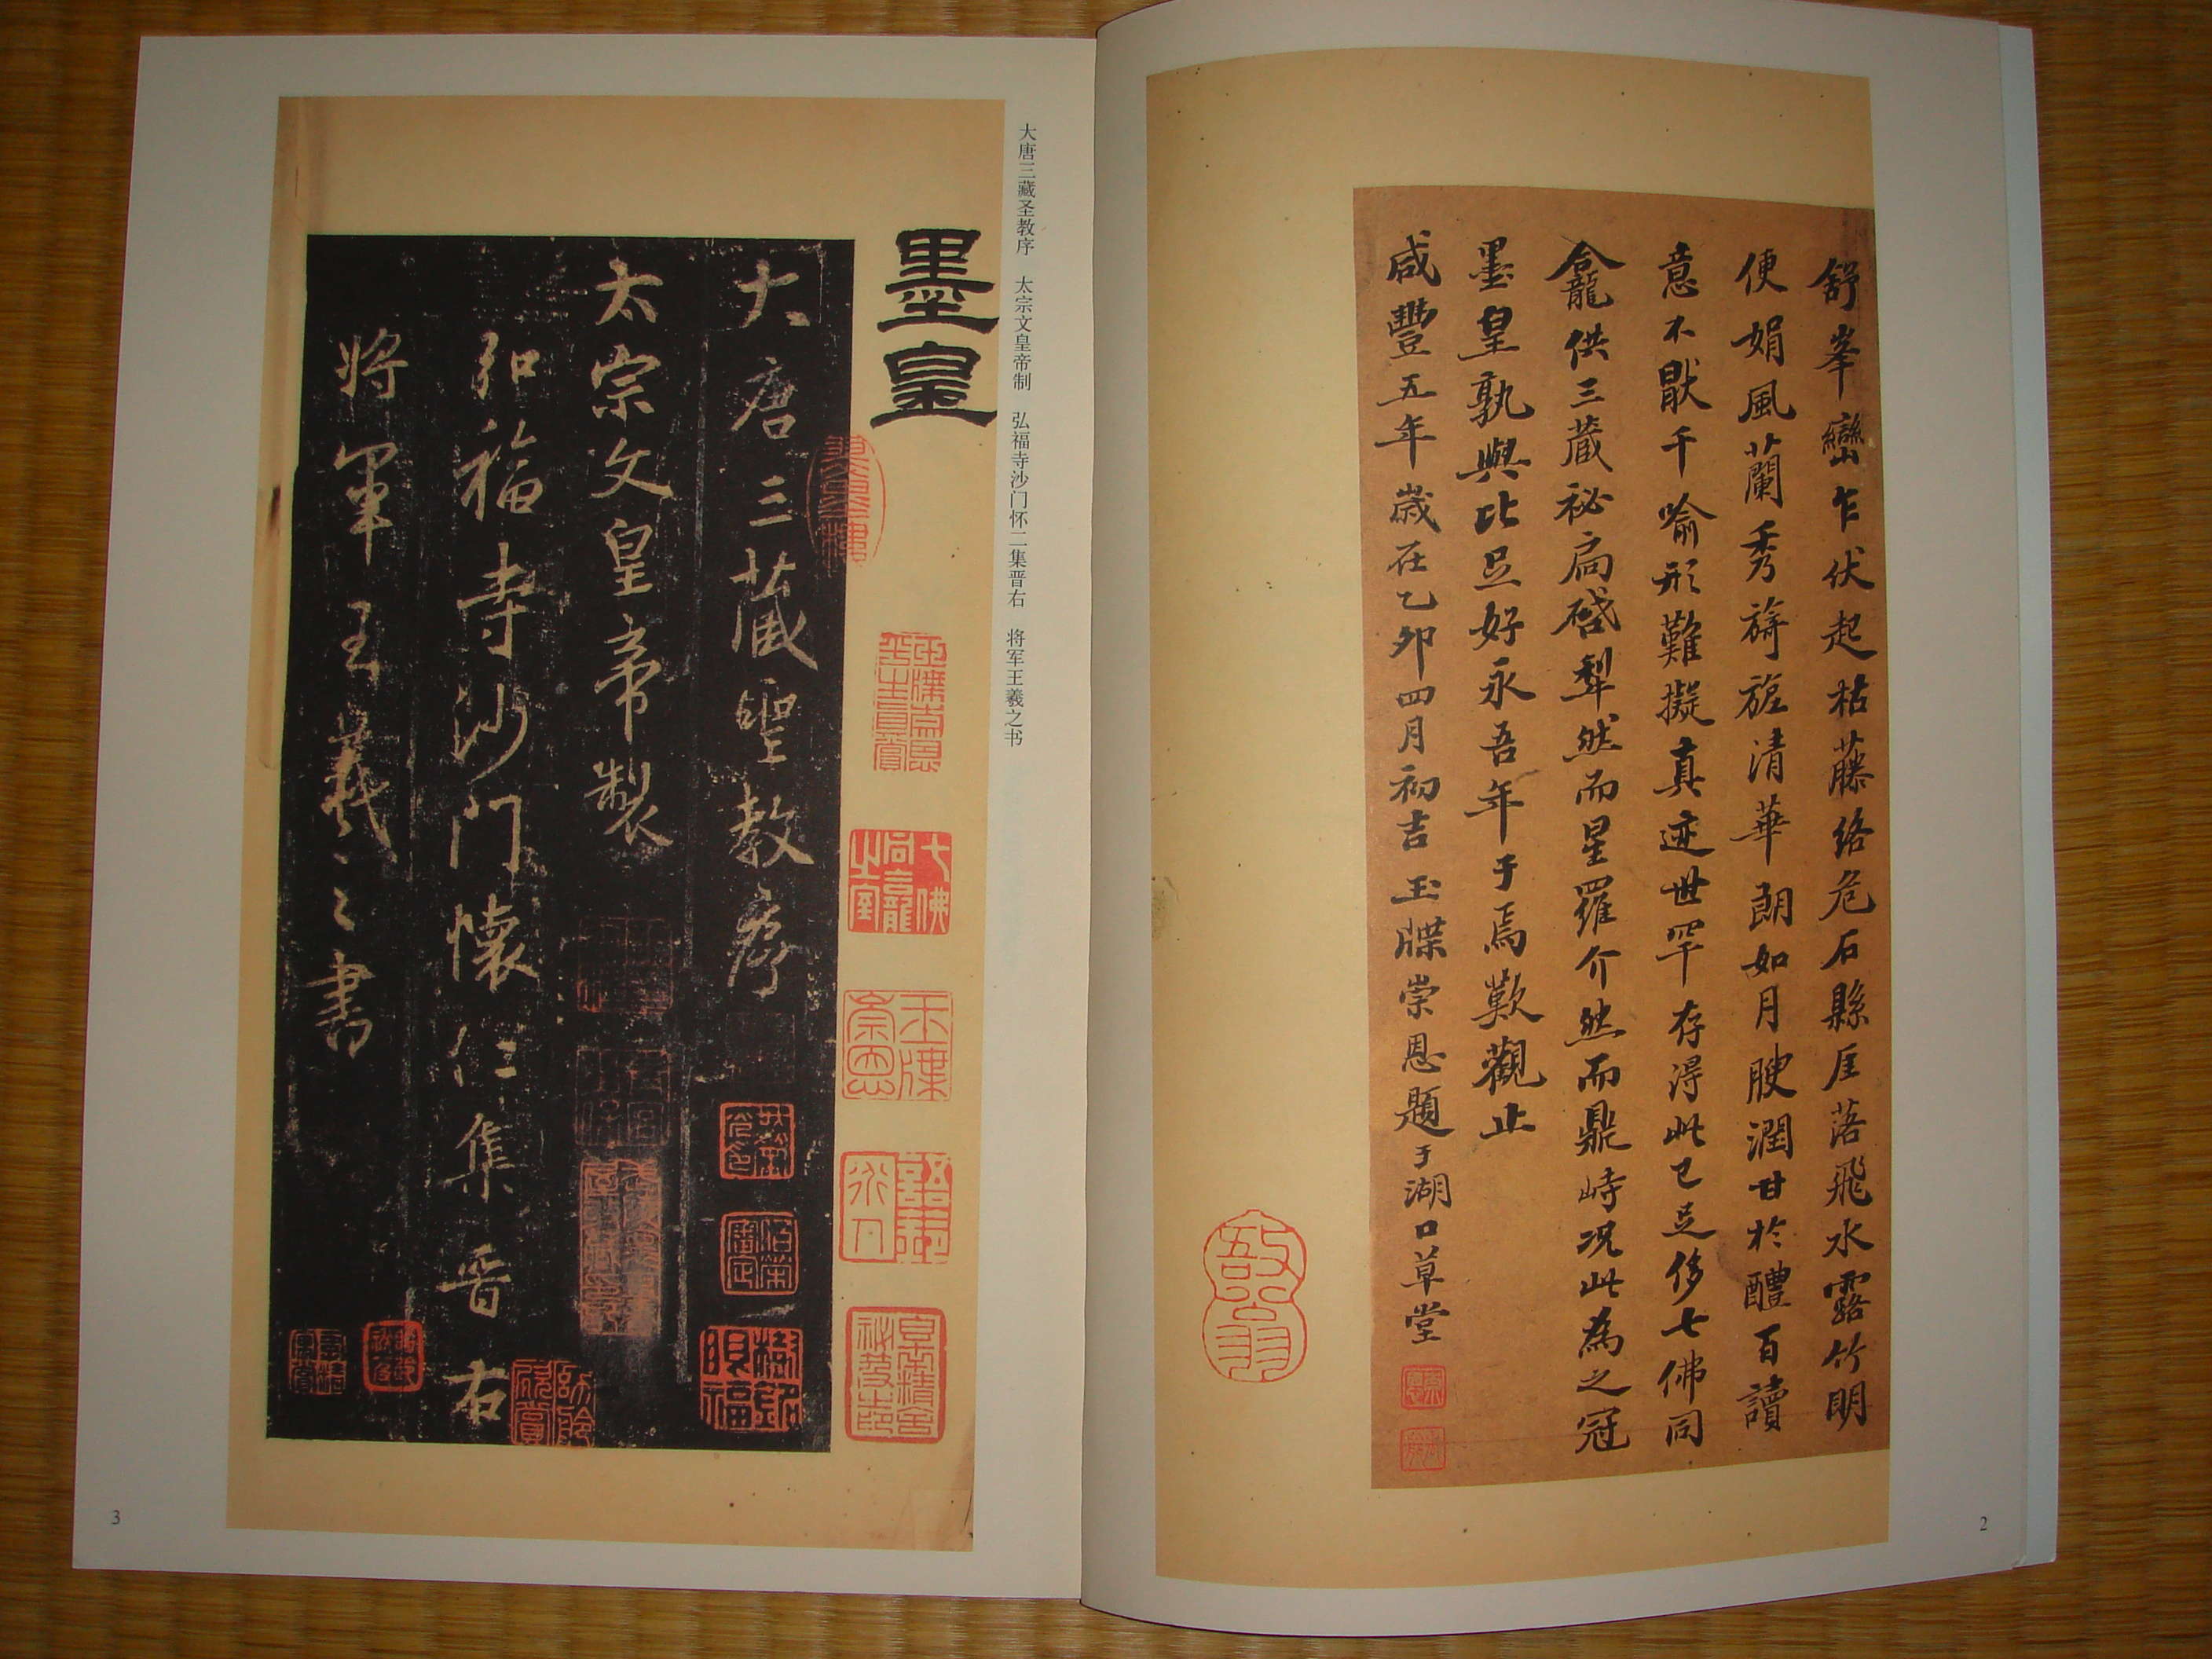 舒峯巒乍伏起枯藤絡危石縣厓落飛水露竹明
便娟風蘭秀旖旎清華朗如月腴潤甘於醴百讀
意不猒千喻形難擬真迹世罕存得此已足侈七佛同
龕供三藏祕扃啓犁然而星羅介然而鼎峙況此為之冠
墨皇孰與比足好永吾年于焉歎觀止
咸豐五年歲在乙卯四月初吉玉牒崇恩題于湖口草堂
2
大唐三藏圣教序 太宗文皇帝制 弘福寺沙门怀二集晋右 将军王羲之书
墨皇
七佛同龕之室
玉牒崇恩
大唐三藏聖教序
太宗文皇帝製
弘福寺沙門懷仁集晉右
將軍王羲之書
3